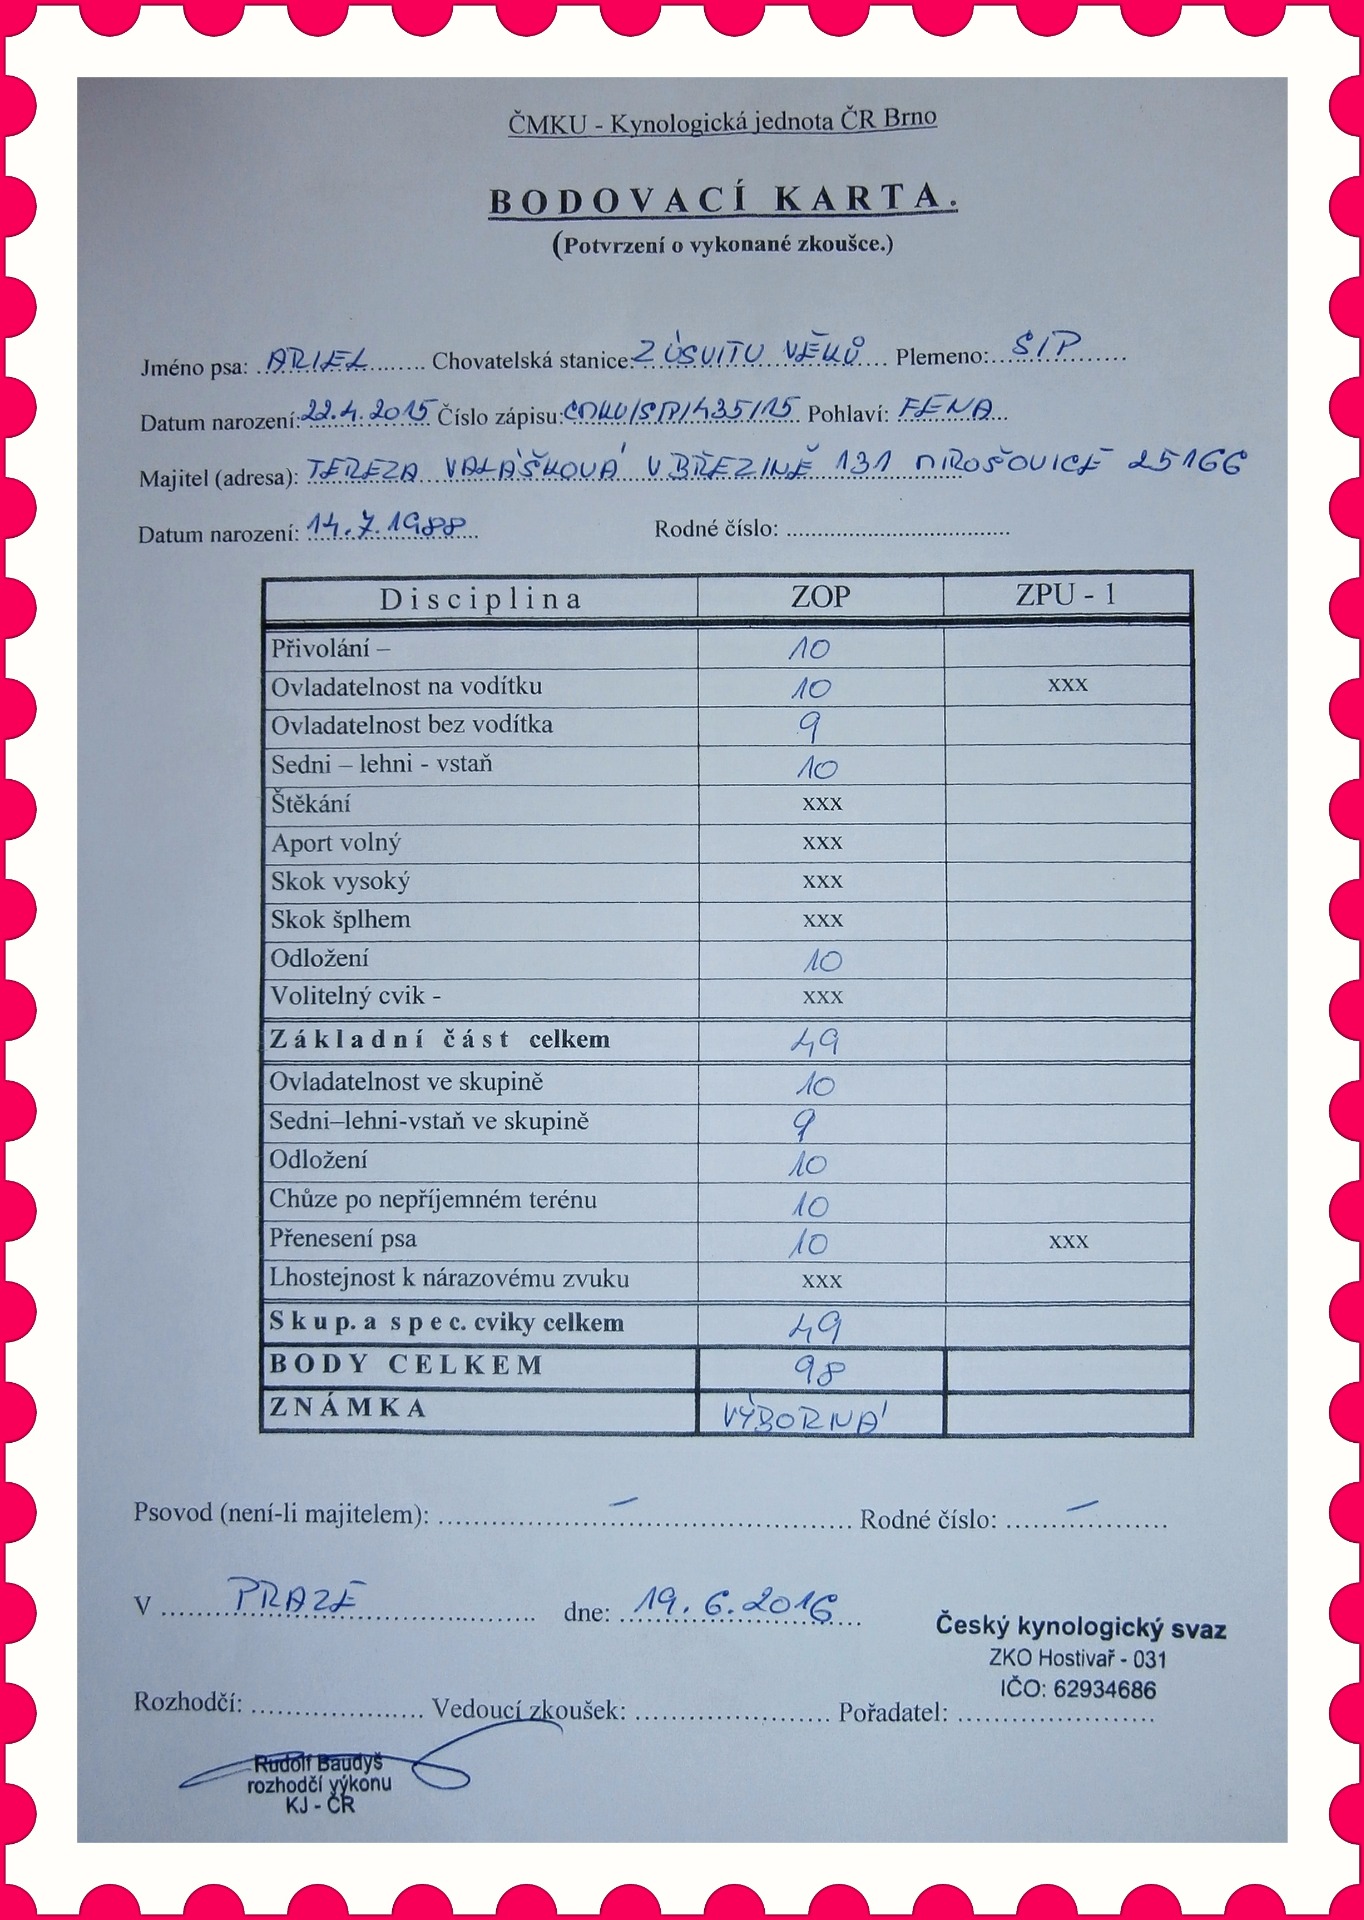 ČMKU - Kynologická jednota ČR Brno
BODOVACÍ KARTA.
(Potvrzení o vykonané zkoušce.)
Jméno psa: ARIEL Chovatelská stanice: Z ÚSVITU VĚKŮ Plemeno: ŠIP
Datum narození: 22.4.2015 Číslo zápisu: CMKU/SP/435/15 Pohlaví: FENA
Majitel (adresa): TEREZA VALÁŠKOVÁ V BŘEZINĚ 131 MIROŠOVICE 25166
Datum narození: 14.7.1988 Rodné číslo:
Disciplina ZOP ZPU - 1
Přivolání – 10
Ovladatelnost na vodítku 10 xxx
Ovladatelnost bez vodítka 9
Sedni – lehni - vstaň 10
Štěkání xxx
Aport volný xxx
Skok vysoký xxx
Skok šplhem xxx
Odložení 10
Volitelný cvik - xxx
Základní část celkem 49
Ovladatelnost ve skupině 10
Sedni–lehni-vstaň ve skupině 9
Odložení 10
Chůze po nepříjemném terénu 10
Přenesení psa 10 xxx
Lhostejnost k nárazovému zvuku xxx
Skup. a spec. cviky celkem 49
BODY CELKEM 98
ZNÁMKA VÝBORNÁ
Psovod (není-li majitelem): – Rodné číslo: –
V PRAZE dne: 19.6.2016
Český kynologický svaz
ZKO Hostivař - 031
IČO: 62934686
Rozhodčí: Vedoucí zkoušek: Pořadatel:
Rudolf Baudyš
rozhodčí výkonu
KJ - ČR